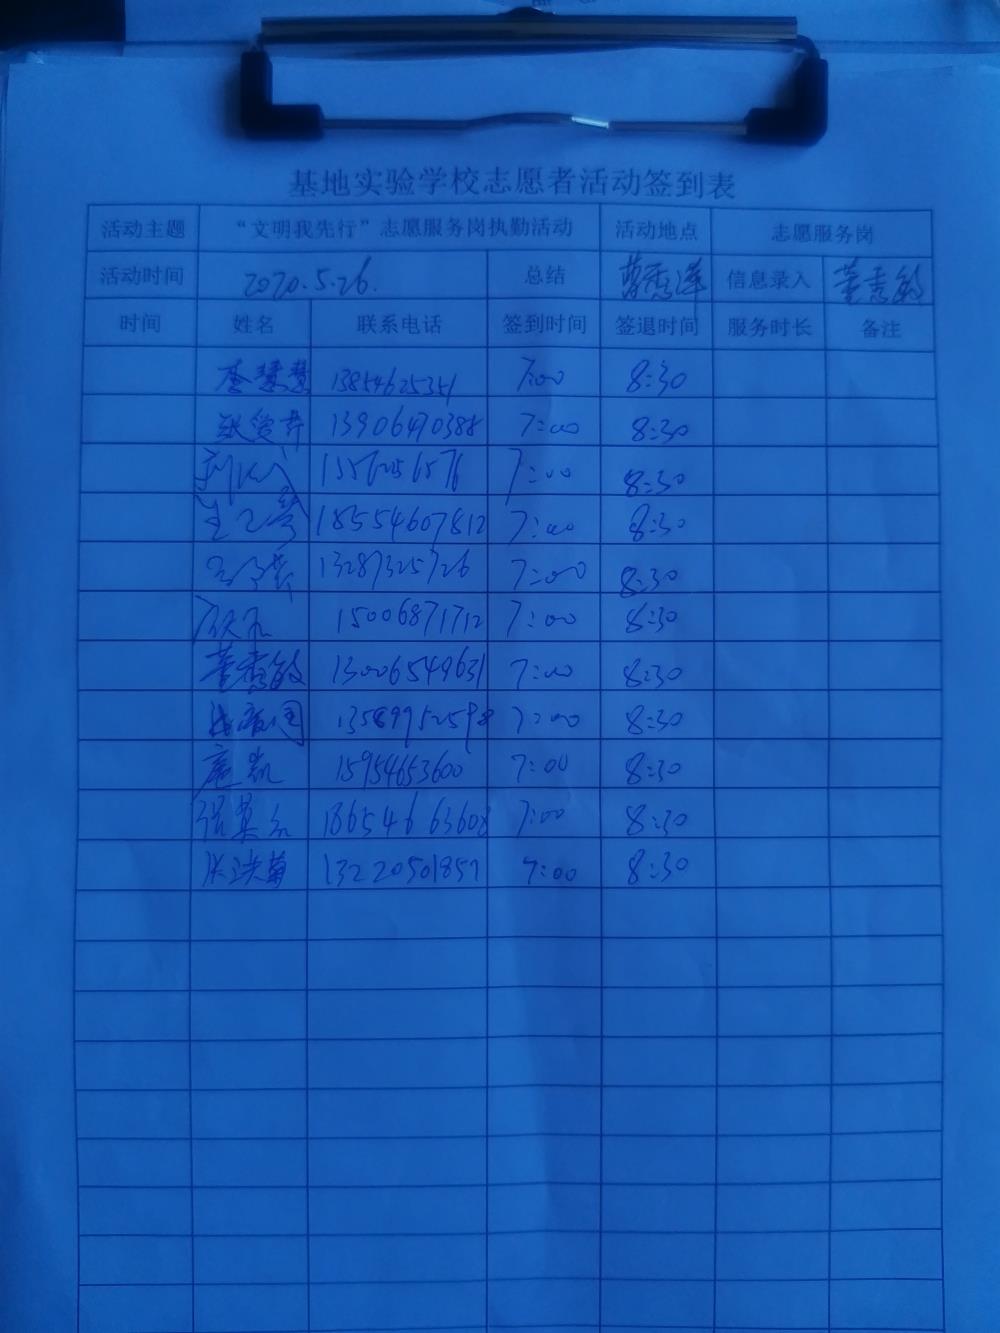 基地实验学校志愿者活动签到表
活动主题 “文明我先行”志愿服务岗执勤活动 活动地点 志愿服务岗
活动时间 2020.5.26. 总结 信息录入 董秀敏
时间 姓名 联系电话 签到时间 签退时间 服务时长 备注
李慧慧 13854625351 7:00 8:30
13906470388 7:00 8:30
7:00 8:30
18554607812 7:00 8:30
13287325726 7:00 8:30
15006871712 7:00 8:30
董秀敏 13006549631 7:00 8:30
13589952598 7:00 8:30
庞凯 15954653600 7:00 8:30
18654663608 7:00 8:30
张洪菊 13220501857 7:00 8:30